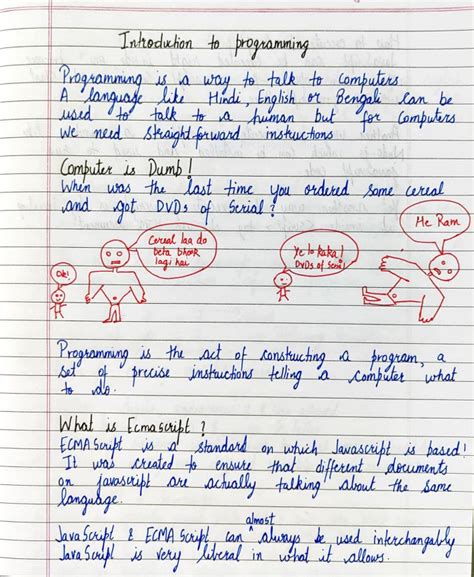 Introduction to programming
Programming is a way to talk to computers
A language like Hindi, English or Bengali can be
used to talk to a human but for computers
we need straight-forward instructions
Computer is Dumb!
When was the last time you ordered some cereal
and got DVDs of Serial?
Ok!
Cereal laa do
beta bhook
lagi hai
Ye lo kaka!
DVDs of Serial
He Ram
Programming is the act of constructing a program, a
set of precise instructions telling a computer what
to do.
What is Ecmascript?
ECMAScript is a standard on which Javascript is based!
It was created to ensure that different documents
on javascript are actually talking about the same
language.
almost
JavaScript & ECMAScript can always be used interchangably
JavaScript is very liberal in what it allows.